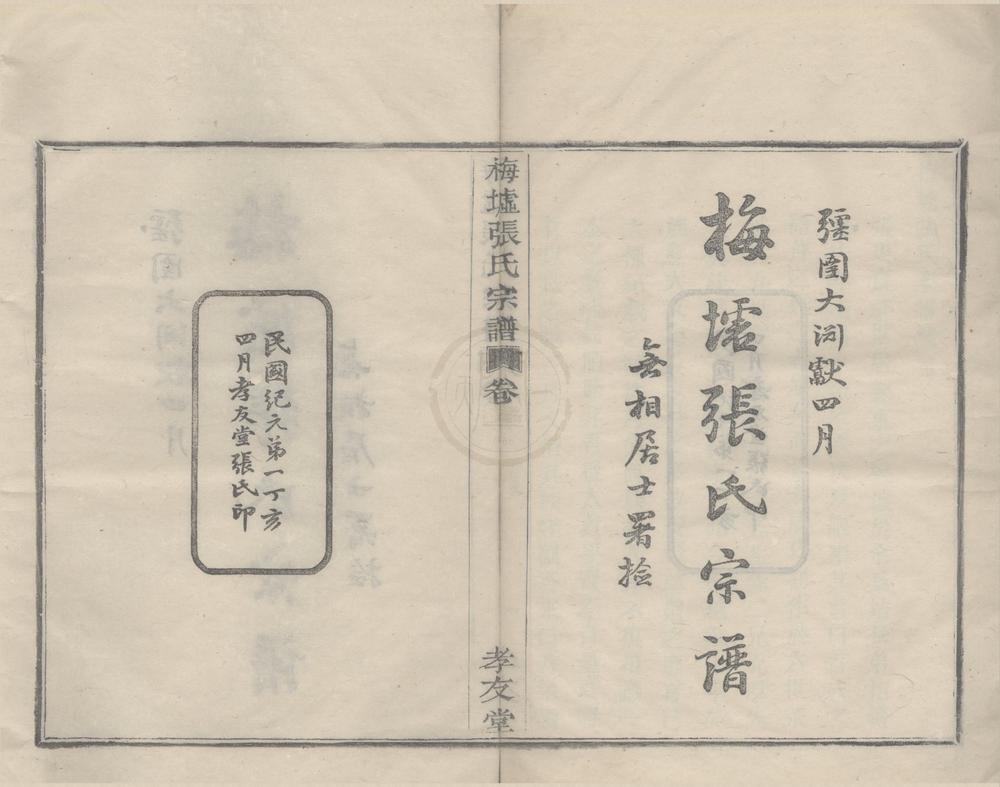 彊圉大渊獻四月
梅墟張氏宗譜
無相居士署捡
梅墟張氏宗譜
卷
孝友堂
民國紀元第一丁亥
四月孝友堂張氏印